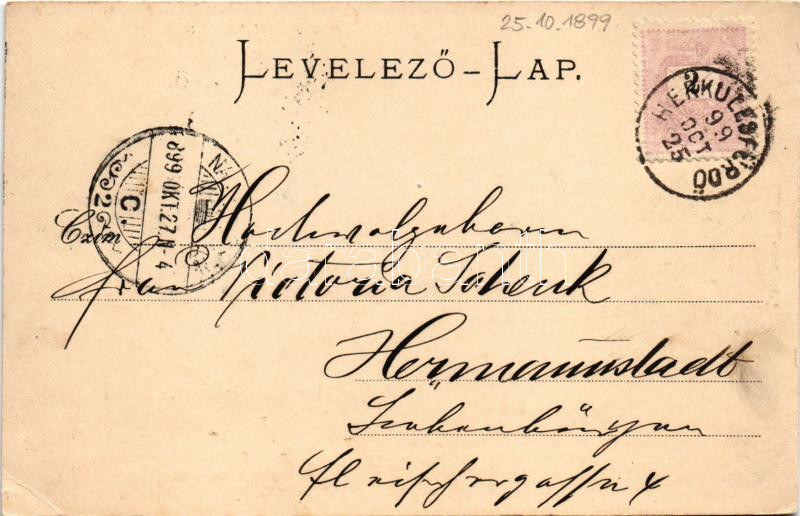 25.10.1899
LEVELEZŐ-LAP.
2
HERKULESFÜRDŐ
99
OCT
25
N
899 OKT.27.N-4
C.
2
Czim
Hochwolgeboren
frau Victoria Schenk
Hermannstadt
Siebenbürgen
fleischergasse 4
darabanth